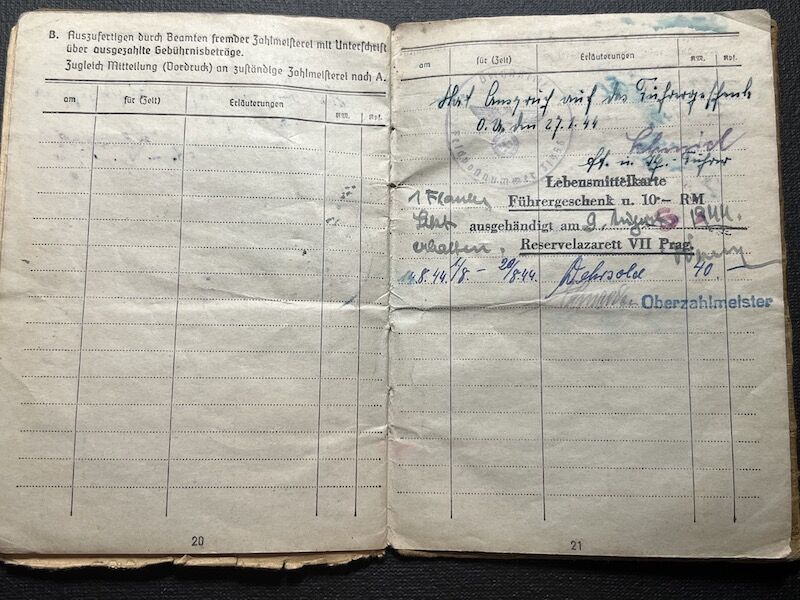 B. Auszufertigen durch Beamten fremder Zahlmeisterei mit Unterschrift
über ausgezahlte Gebührnisbeträge.
Zugleich Mitteilung (Vordruck) an zuständige Zahlmeisterei nach A.
am für (Zeit) Erläuterungen RM. Rpf.
20
am für (Zeit) Erläuterungen RM. Rpf.
Hat Anspruch auf das Führergeschenk
O.U. den 27.1.44
Feldpostnummer
Lebensmittelkarte
Führergeschenk u. 10.– RM
ausgehändigt am 9. August 1944.
Reservelazarett VII Prag.
1 Flasche
Sekt
erhalten.
11.8.44 11/8 – 20/8.44 Wehrsold 40.–
Oberzahlmeister
21